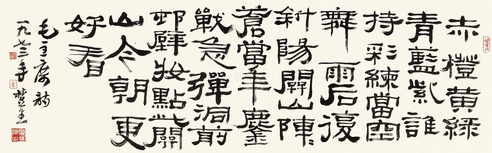 赤橙黄綠
青藍紫誰
持彩練當空
舞雨后復
斜陽關山陣〻
蒼當年鏖
戰急彈洞前
邨壁妝點關
山今朝更
好看
毛主席詞
一九七三年